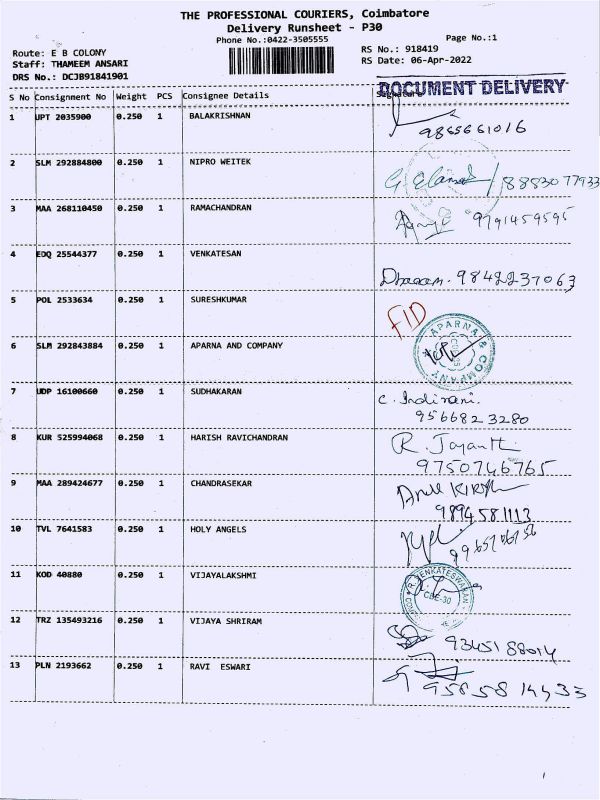 THE PROFESSIONAL COURIERS, Coimbatore
Delivery Runsheet - P30
Phone No.:0422-3505555
Page No.:1
Route: E B COLONY
RS No.: 918419
Staff: THAMEEM ANSARI
RS Date: 06-Apr-2022
DRS No.: DCJB91841901
DOCUMENT DELIVERY
S No Consignment No Weight PCS Consignee Details Signature
1 UPT 2035900 0.250 1 BALAKRISHNAN
9865661016
2 SLM 292884800 0.250 1 NIPRO WEITEK
8883077933
3 MAA 268110450 0.250 1 RAMACHANDRAN
9791459595
4 EDQ 25544377 0.250 1 VENKATESAN
9842237063
5 POL 2533634 0.250 1 SURESHKUMAR
FID
6 SLM 292843884 0.250 1 APARNA AND COMPANY
APARNA & COMPANY
7 UDP 16100660 0.250 1 SUDHAKARAN
C. Indirani.
9566823280
8 KUR 525994068 0.250 1 HARISH RAVICHANDRAN
R. Jayanthi
9750746765
9 MAA 289424677 0.250 1 CHANDRASEKAR
9894581113
10 TVL 7641583 0.250 1 HOLY ANGELS
11 KOD 40880 0.250 1 VIJAYALAKSHMI
CBE-30
12 TRZ 135493216 0.250 1 VIJAYA SHRIRAM
9345188014
13 PLN 2193662 0.250 1 RAVI ESWARI
9585814433